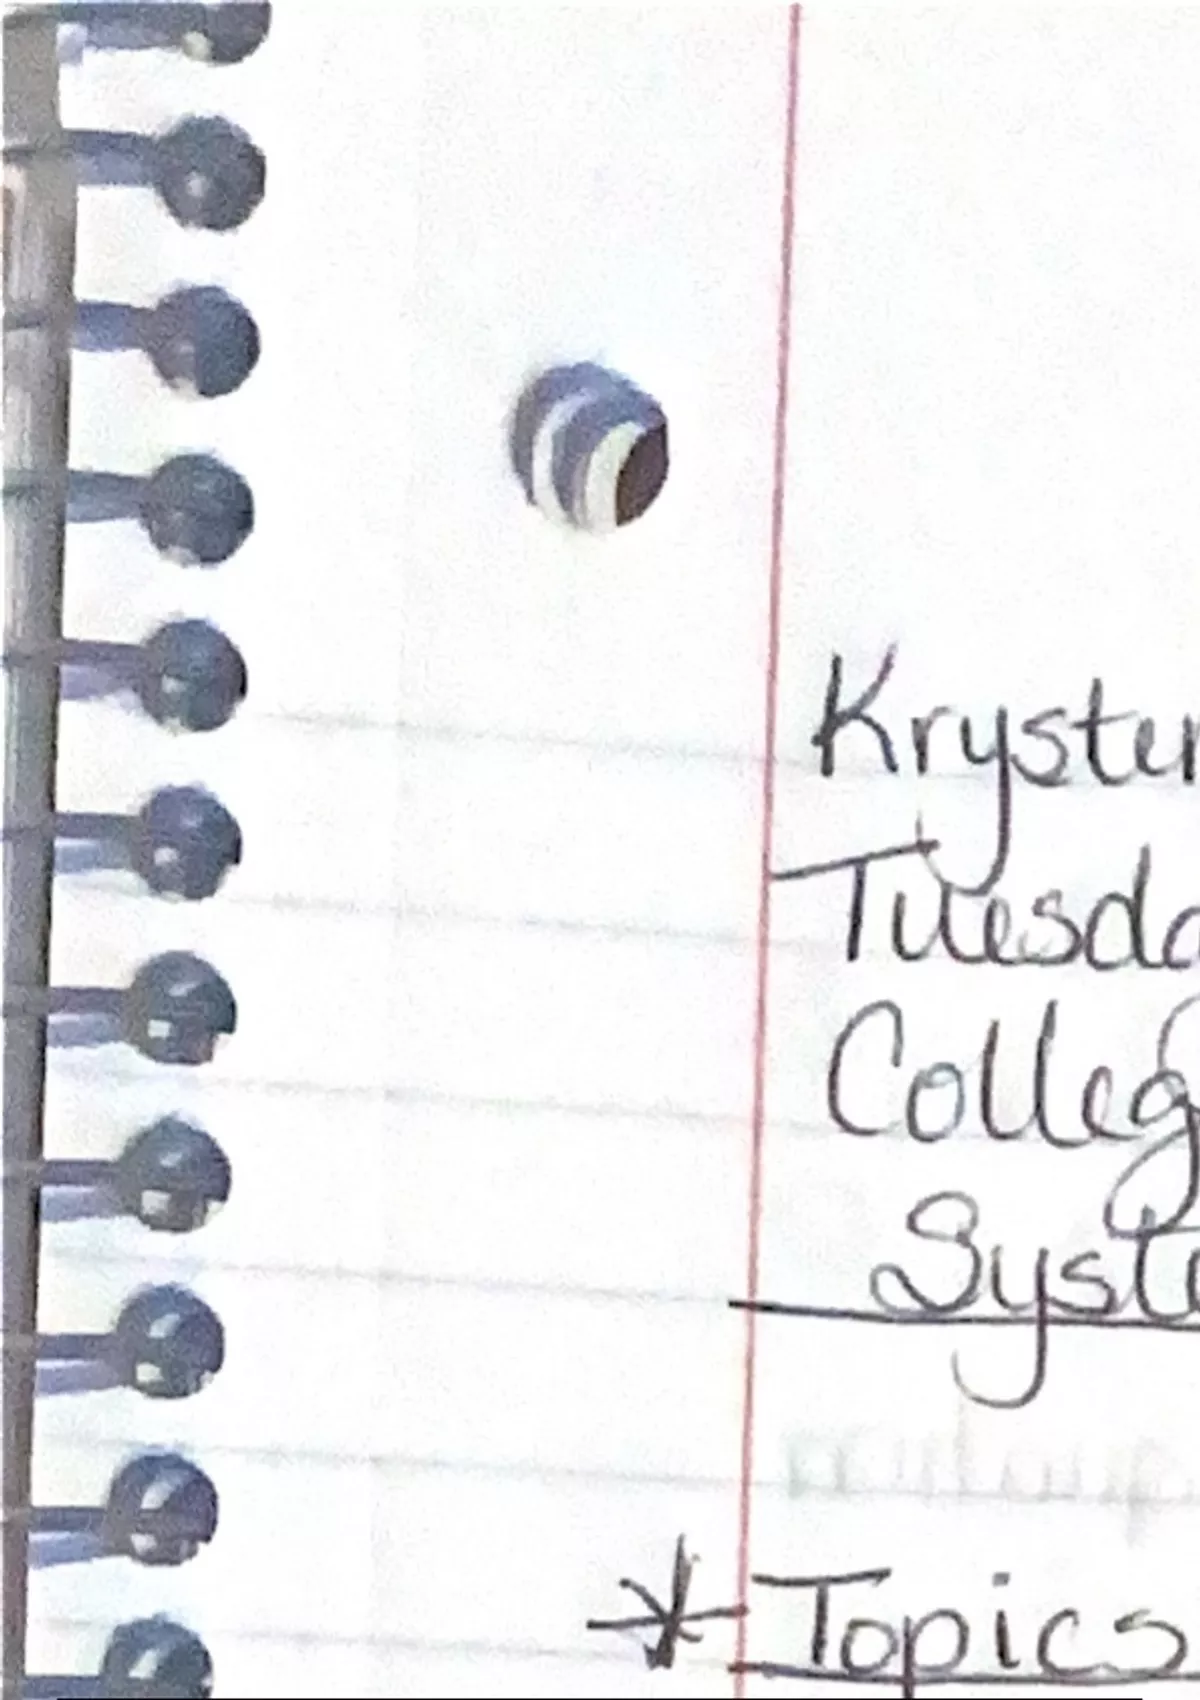 Kryster
Tuesda
Colleg
Syste
* Topics